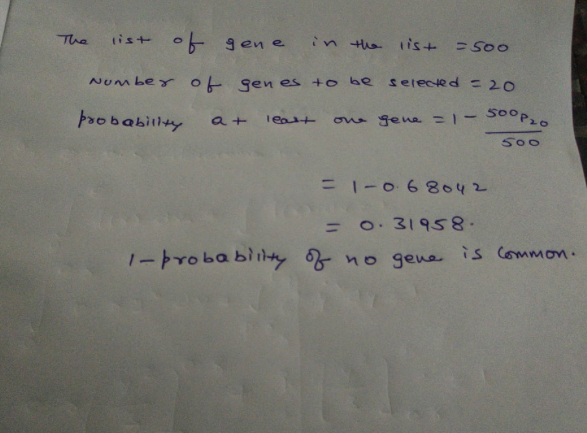 The list of gene in the list = 500
Number of genes to be selected = 20
probability at least one gene = 1 - 500P20
500
= 1-0.68042
= 0.31958.
1-probability of no gene is common.